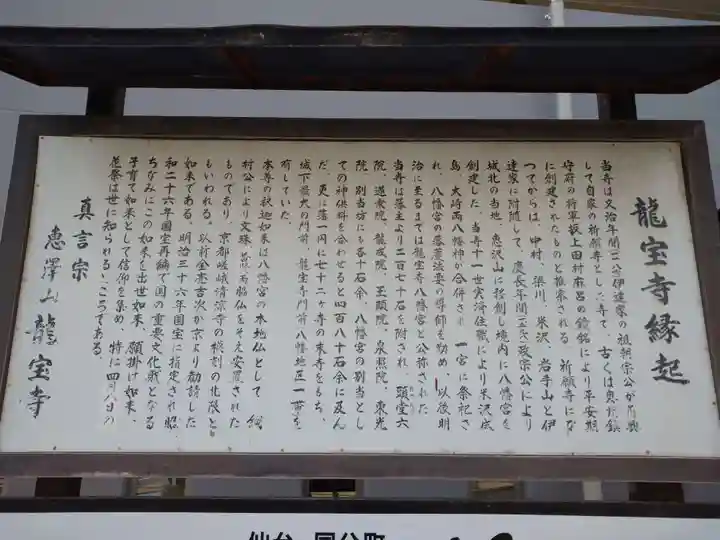 龍宝寺縁起
当寺は文治年間
伊達家の祖朝宗公が
して自家の祈願寺とした寺で、古くは奥州鎮
守府の将軍坂上田村麻呂の
により平安期
に創建されたものと推察される。祈願寺にな
つてからは、中村、梁川、米沢、岩手山と伊
達家に附随して、慶長年間
政宗公により
城北の当地、恵沢山に
創し境内に八幡宮を
創建した。当寺十一世実済住職により米沢成
島、大崎両八幡神が合併され、一宮に祭祀さ
れ、八幡宮の落慶法要の導師を勤め、以後明
治に至るまでは龍宝寺八幡宮と公称された。
当寺は藩主より二百七十石を附され、頭堂六
院、
院、龍成院、
院、泉照院、東光
院、別当坊にも各十石余、八幡宮の別当とし
ての神供料を合わせると四百八十石余に及ん
だ。更に藩一円に七十二ヶ寺の末寺をもち、
城下最大の門前、龍宝寺門前八幡地区一帯を
有していた。
本尊の釈迦如来は八幡宮の本地仏として、綱
村公により文珠、普賢両脇仏をそえ安置された
ものであり、京都嵯峨清凉寺の栴檀の化現と
もいわれる。以前金売吉次が京より勧請した
如来である。明治三十六年国宝に指定され昭
和二十六年国宝再編で国の重要文化財となる
ちなみにこの如来を出世如来、願掛け如来、
子育て如来として信仰を集め、特に四月八日の
花祭は世に知られるところである。
真言宗
恵澤山龍宝寺
仙台 国分町